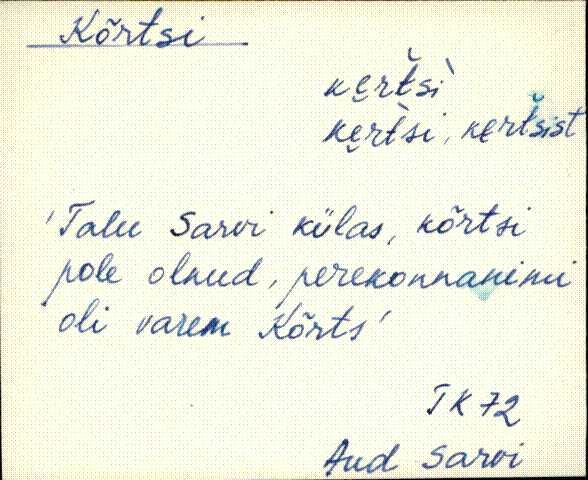 Kõrtsi
kē̮rt̆sì
kē̮rt̀si, kē̮rt̆sist
'Talu Sarvi külas, kõrtsi
pole olnud, perekonnanimi
oli varem Kõrts'
TK 72
Aud Sarvi